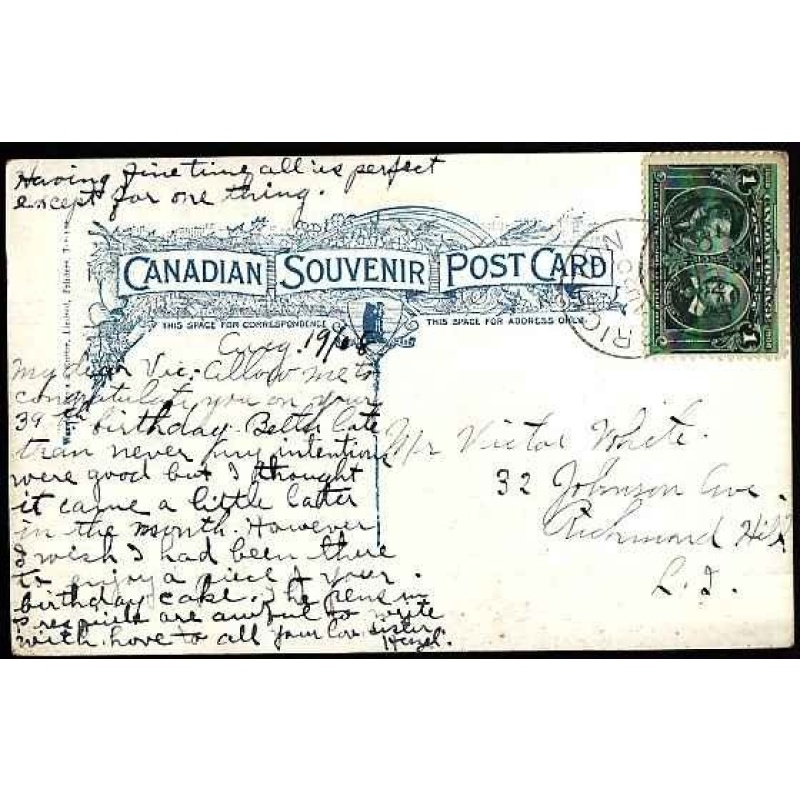 Having fine time all is perfect
except for one thing.
CANADIAN SOUVENIR POST CARD
THIS SPACE FOR CORRESPONDENCE
THIS SPACE FOR ADDRESS ONLY
Aug. 19/08
My dear Vic. Allow me to
congratulate you on your
39th birthday. Better late
than never my intentions
were good but I thought
it came a little later
in the month. However
I wish I had been there
to enjoy a piece of your
birthday cake. The pens in
are awful to write
with. Love to all your lov. sister
Hazel.
Mr Victor White.
32 Johnson Ave.
Richmond Hill
L. I.
1
1